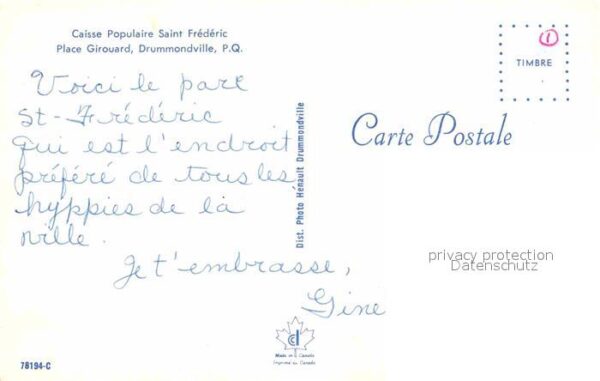 Caisse Populaire Saint Frédéric
Place Girouard, Drummondville, P.Q.
1
TIMBRE
Voici le parc
St-Frédéric
qui est l'endroit
préféré de tous les
hyppies de la
ville.
Je t'embrasse,
Gine
Dist. Photo Hénault Drummondville
Carte Postale
privacy protection
Datenschutz
Made in Canada
Imprimé au Canada
78194-C